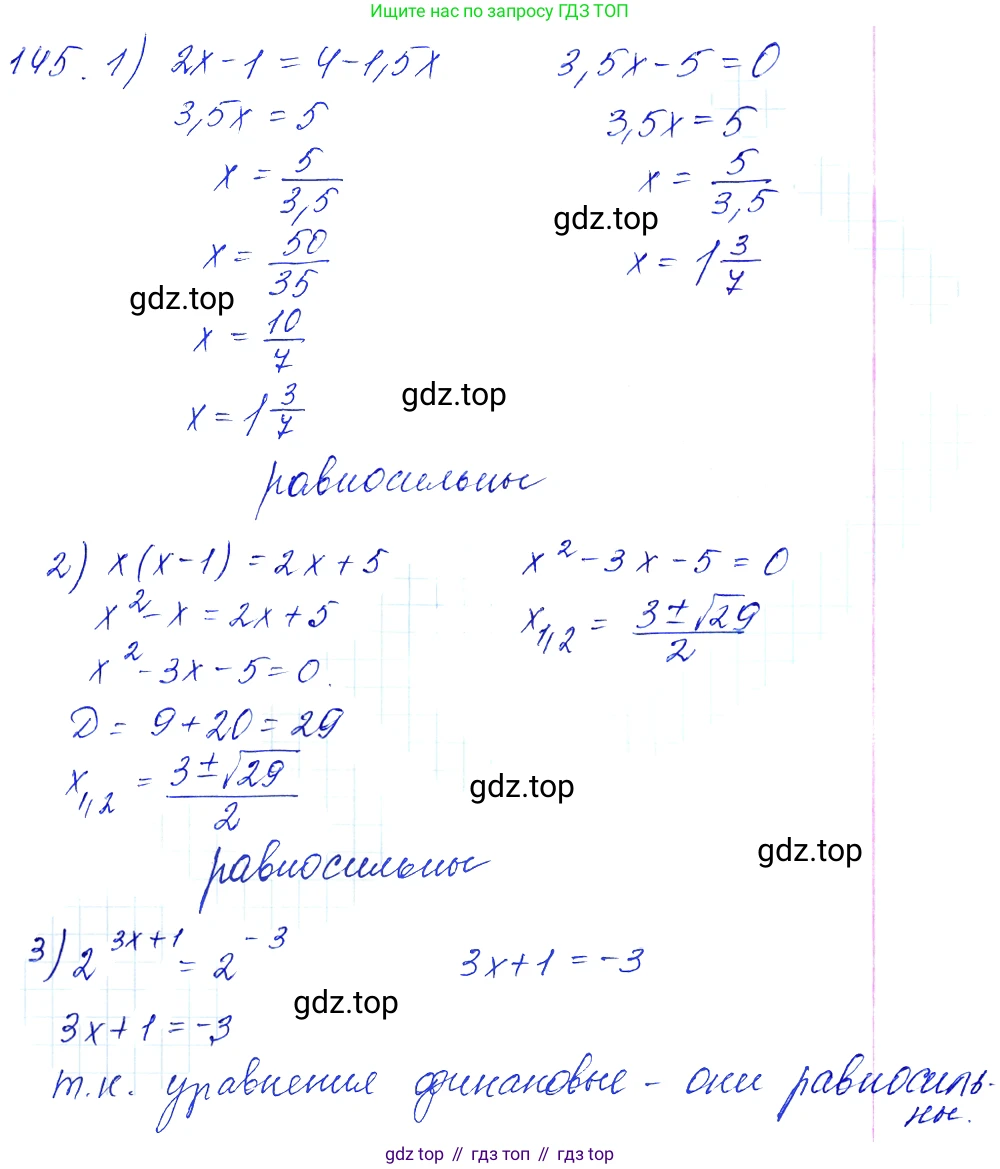 Ищите нас по запросу ГДЗ ТОП
145. 1) 2x - 1 = 4 - 1,5x
3,5x = 5
x = 5/3,5
x = 50/35
x = 10/7
x = 1 3/7
3,5x - 5 = 0
3,5x = 5
x = 5/3,5
x = 1 3/7
gdz.top
gdz.top
gdz.top
равносильны
2) x(x - 1) = 2x + 5
x² - x = 2x + 5
x² - 3x - 5 = 0.
D = 9 + 20 = 29
x₁,₂ = (3 ± √29)/2
x² - 3x - 5 = 0
x₁,₂ = (3 ± √29)/2
gdz.top
gdz.top
равносильны
3) 2^(3x+1) = 2^(-3)
3x + 1 = -3
3x + 1 = -3
gdz.top
т.к. уравнения динаковые - они равносиль-
ны.
gdz.top // гдз топ // gdz.top